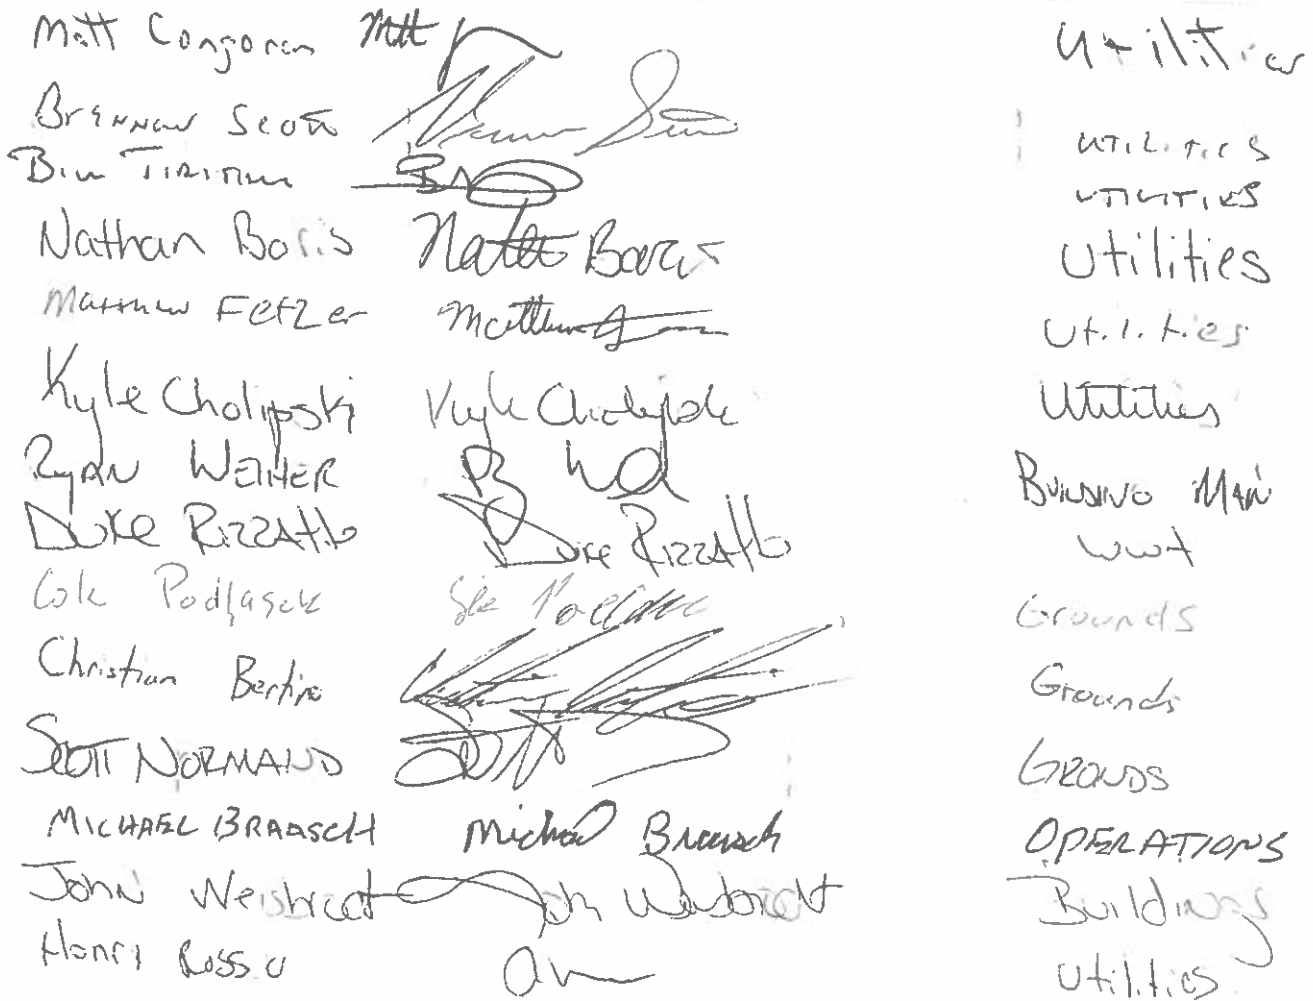 Matt Congoran Matt Utilities
Brennan Scott Utilities
Bill UTILITIES
Nathan Boris Nathan Boris Utilities
Matthew Fetzer Matthew Utilities
Kyle Cholipski Kyle Cholipski Utilities
Ryan WEIHER Building Main
Duke Rizzatto Duke Rizzatto wwt
Cole Podjasek Grounds
Christian Bertino Grounds
Scott NORMAND GROUDS
MICHAEL BRAASCH Michael Braasch OPERATIONS
John Weisbrodt John Weisbrodt Buildings
Henri Russo Utilities